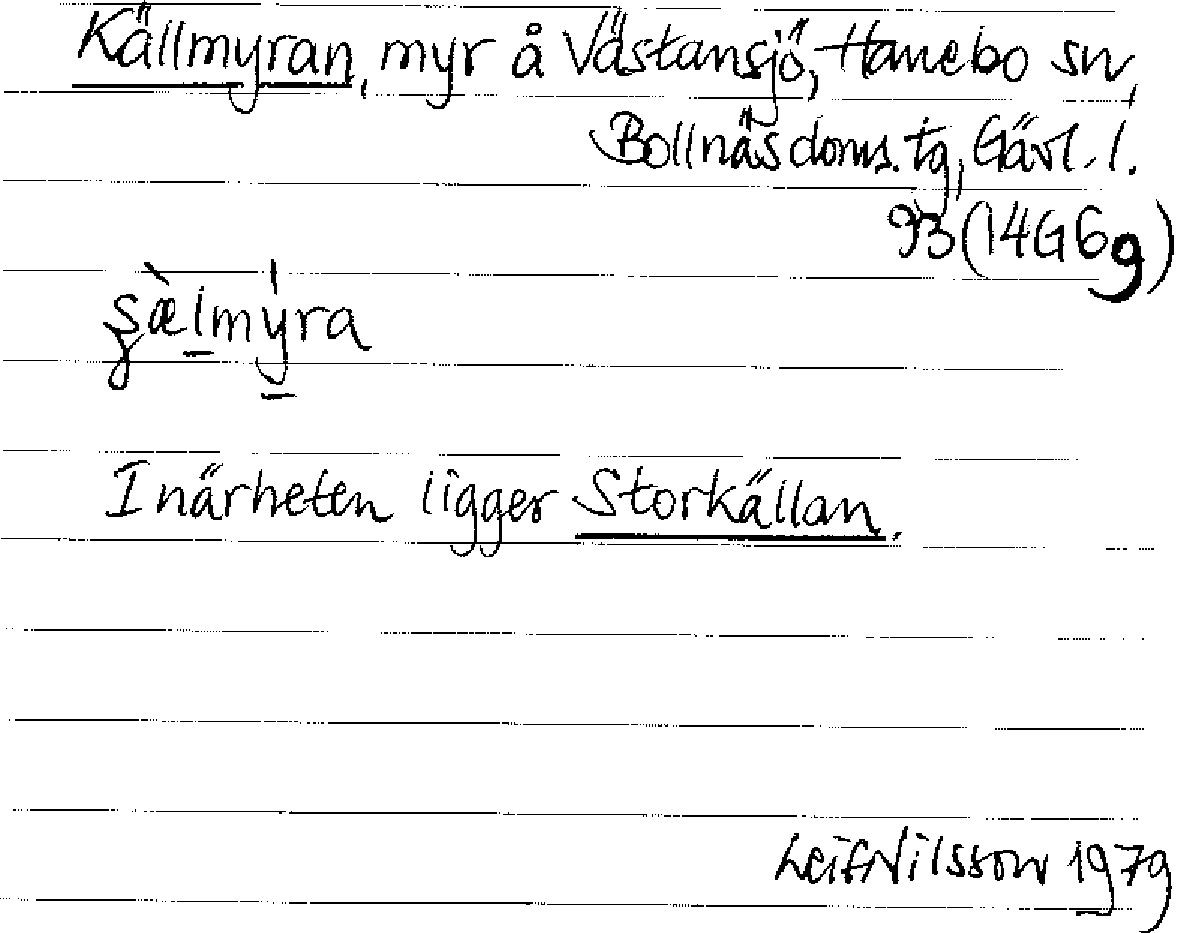 Källmyran, myr å Västansjö, Hanebo sn,
Bollnäs doms. tg, Gävl. l.
93 (14G6g)
I närheten ligger Storkällan.
Leif Nilsson 1979